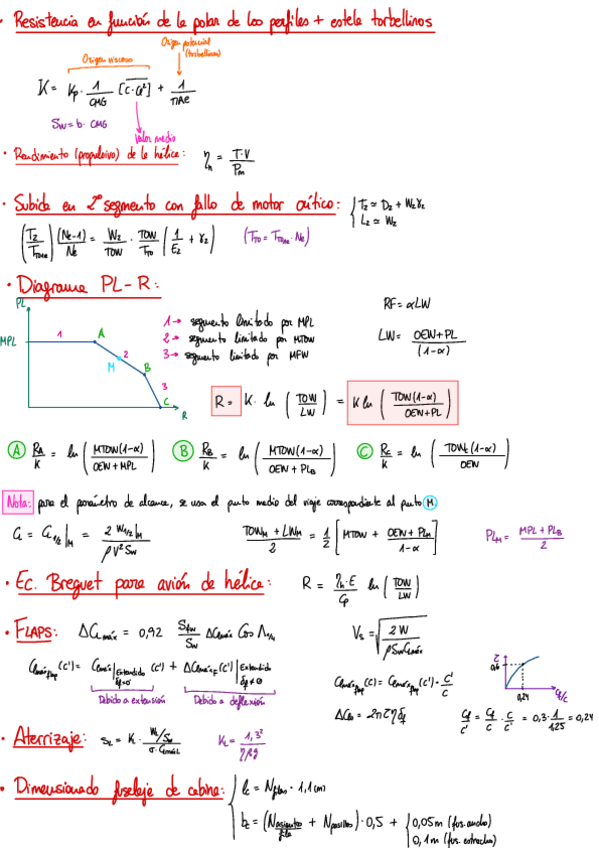 • Resistencia en función de la polar de los perfiles + estela torbellinos
Origen viscoso
Origen potencial (torbellinos)
K = Kp · 1/CMG [c·Cl²] + 1/πARe
Sw = b · CMG
Valor medio
• Rendimiento (propulsivo) de la hélice: ηh = T·V/Pm
• Subida en 2º segmento con fallo de motor crítico: { T2 ≃ D2 + W2γ2
L2 ≃ W2
(T2/TTOme) (Ne-1)/Ne = W2/TOW · TOW/TTO (1/E2 + γ2) (TTO = TTOme · Ne)
• Diagrama PL-R:
PL
MPL
1
A
M
2
B
3
C
R
1 → segmento limitado por MPL
2 → segmento limitado por MTOW
3 → segmento limitado por MFW
RF = αLW
LW = OEW+PL/(1-α)
R = K · ln (TOW/LW) = K ln (TOW(1-α)/OEW+PL)
Ⓐ RA/K = ln (MTOW(1-α)/OEW+MPL) Ⓑ RB/K = ln (MTOW(1-α)/OEW+PLB) Ⓒ RC/K = ln (TOWc(1-α)/OEW)
Nota: para el parámetro de alcance, se usa el punto medio del viaje correspondiente al punto Ⓜ.
= 2 W1/2|M / ρV²Sw
TOWM + LWM/2 = 1/2 [MTOW + OEW+PLM/1-α]
PLM = MPL + PLB/2
• Ec. Breguet para avión de hélice: R = ηh·E/Cp ln (TOW/LW)
• FLAPS: ΔCLmáx = 0,92 Sfw/Sw ΔClmáx Cos Λ1/4
Vs = √(2W/ρSwCLmáx)
Clmáxflap (c') = Clmáx|Extendido δf=0 (c') + ΔClmáxF(c')|Extendido δf≠0
Debido a extensión
Debido a deflexión
Clmáxflap (c) = Clmáxflap (c') · c'/c
ΔClo = 2πτηδf
τ
0,6
0,24
cf/c
cf/c' = cf/c · c/c' = 0,3 · 1/1,25 = 0,24
• Aterrizaje: SL = K · WL/Sw / σ·CLmáxL KL = 1,3²/ηρg
• Dimensionado fuselaje de cabina: { lc = Nfilas · 1,1 (m)
bc = (Nasientos/fila + Npasillos) · 0,5 + { 0,05m (fus. ancho)
0,1m (fus. estrecho)